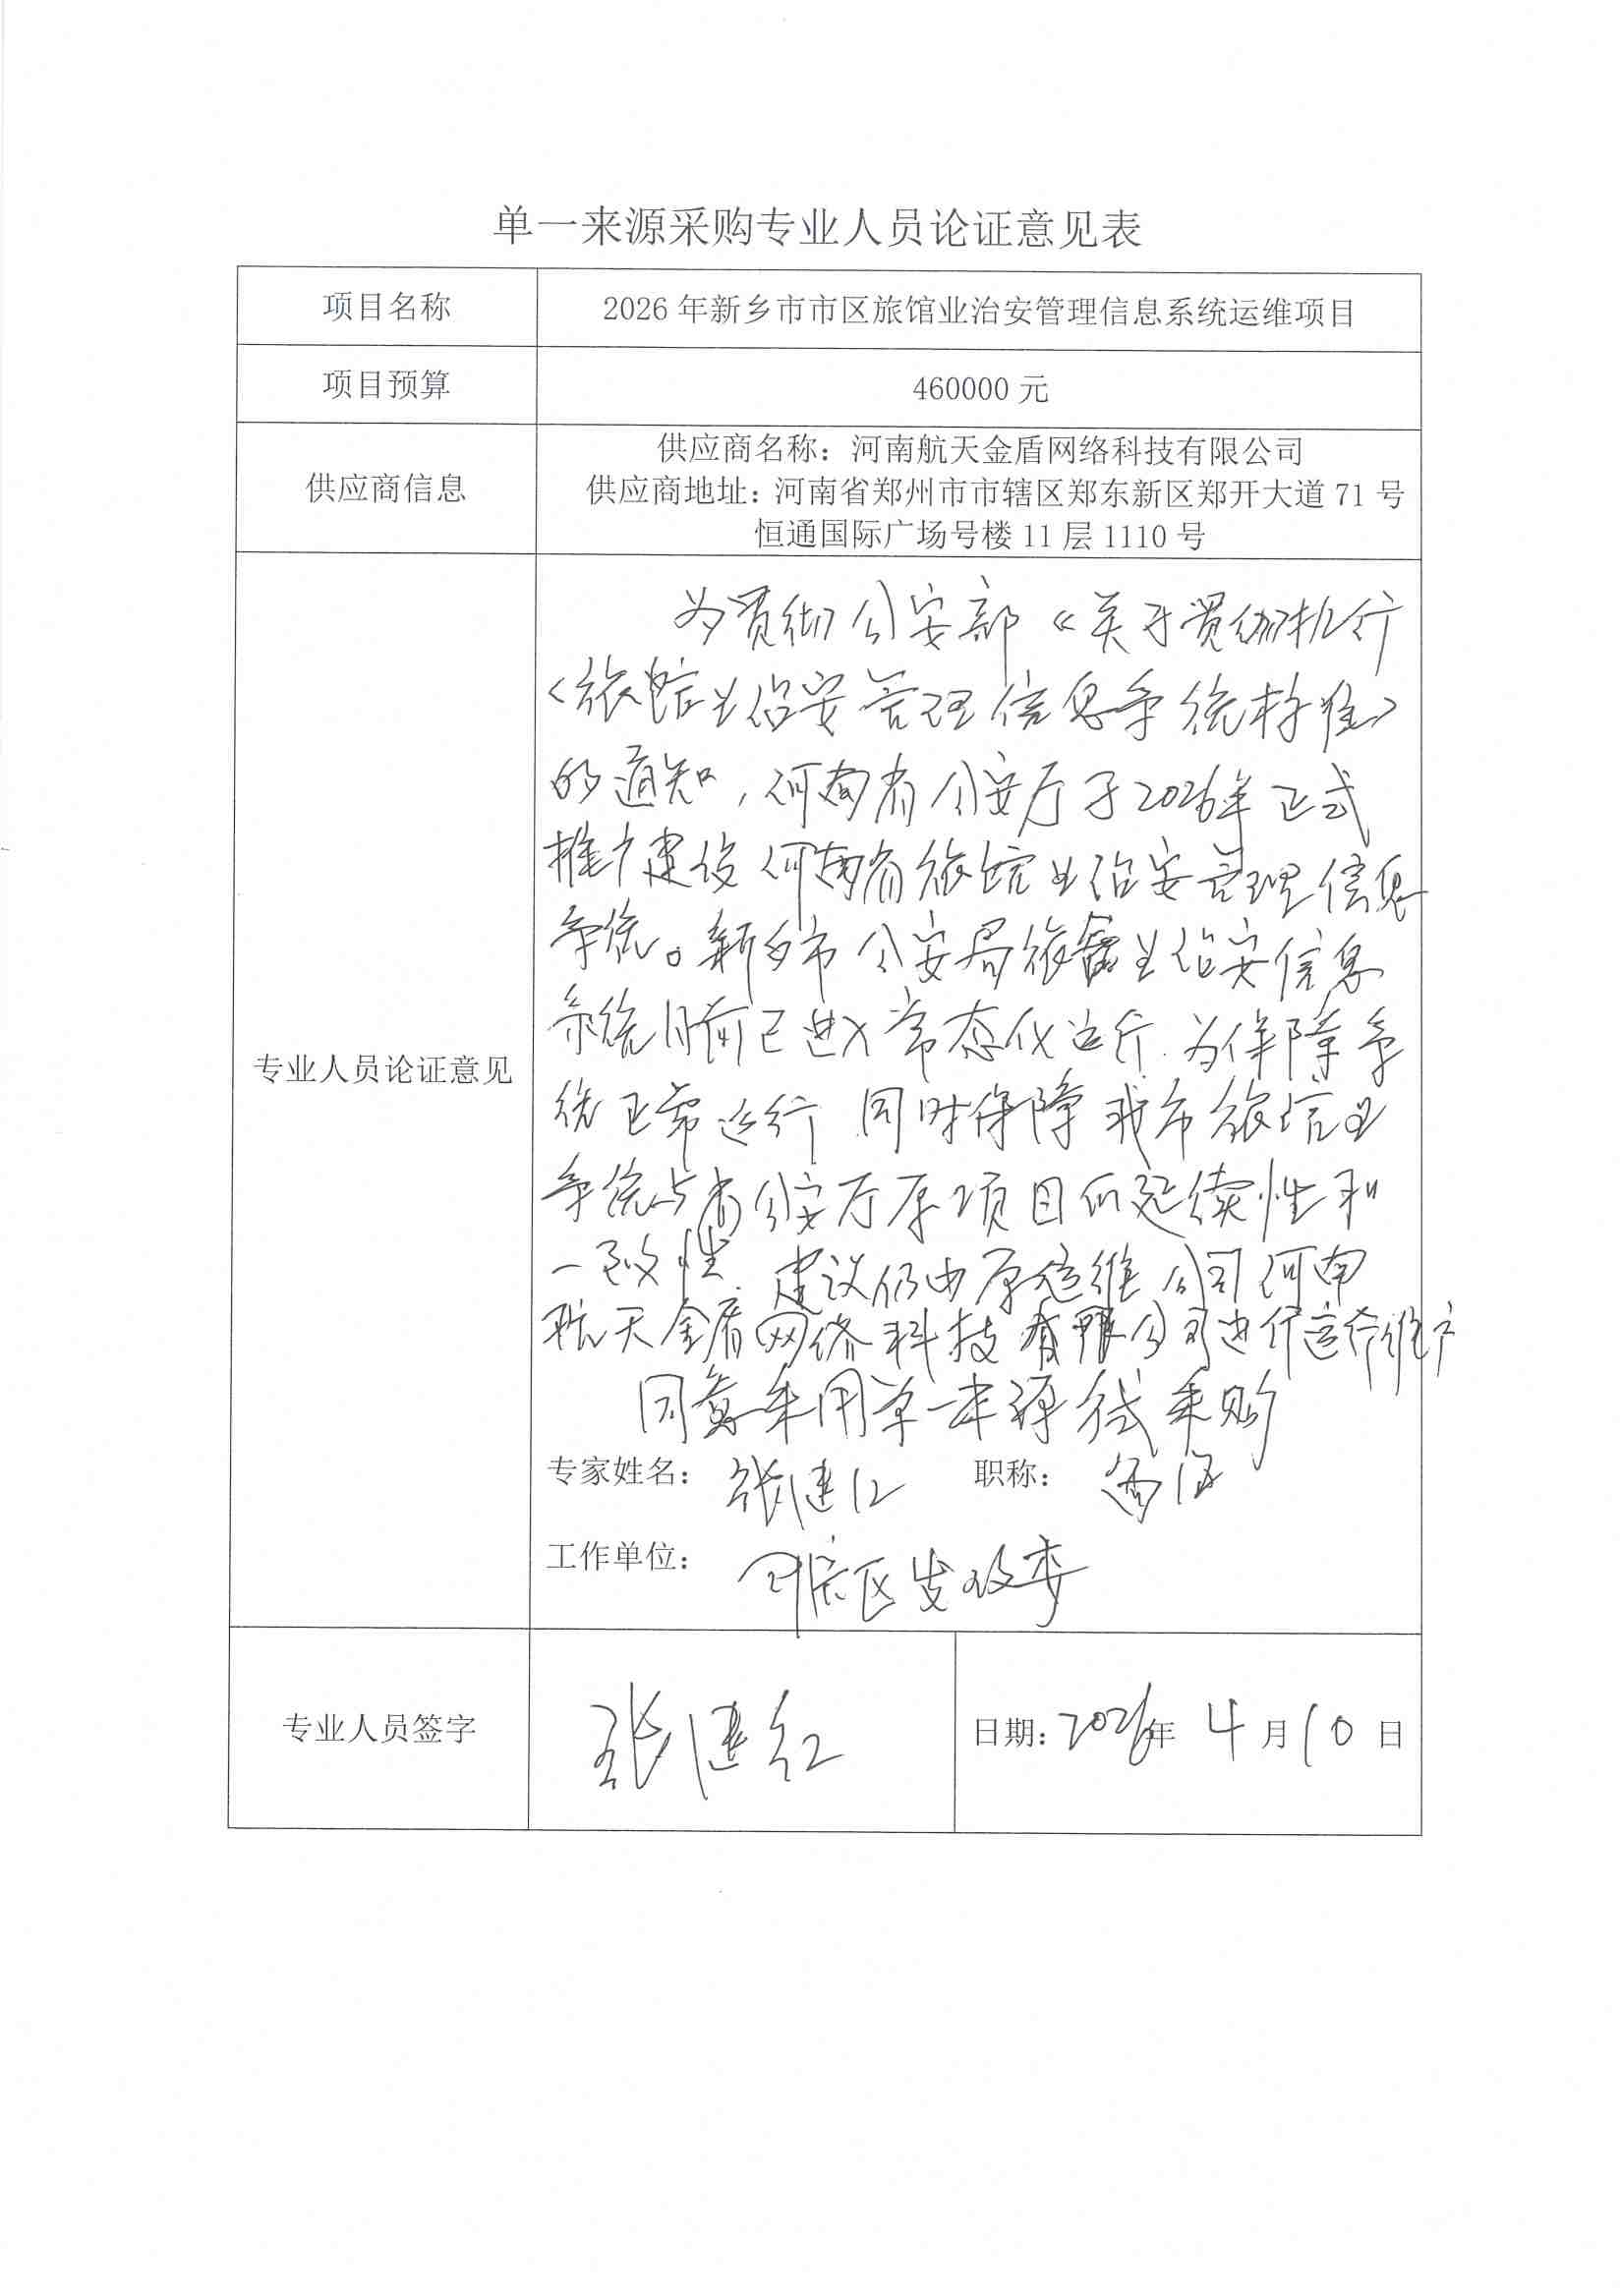 单一来源采购专业人员论证意见表
项目名称
2026年新乡市市区旅馆业治安管理信息系统运维项目
项目预算
460000元
供应商信息
供应商名称：河南航天金盾网络科技有限公司
供应商地址：河南省郑州市市辖区郑东新区郑开大道71号
恒通国际广场号楼11层1110号
专业人员论证意见
为贯彻公安部《关于贯彻执行
<旅馆业治安管理信息系统标准>
的通知，河南省公安厅于2026年正式
推广建设河南省旅馆业治安管理信息
系统。新乡市公安局旅馆业治安信息
系统目前已进入常态化运行.为保障系
统正常运行 同时保障我市旅馆业
系统与省公安厅原项目的延续性和
一致性.建议仍由原运维公司河南
航天金盾网络科技有限公司进行运行维护
同意采用单一来源方式采购
专家姓名：张建红 职称：高工
工作单位：区发改委
专业人员签字
张建红
日期：2026年4月10日